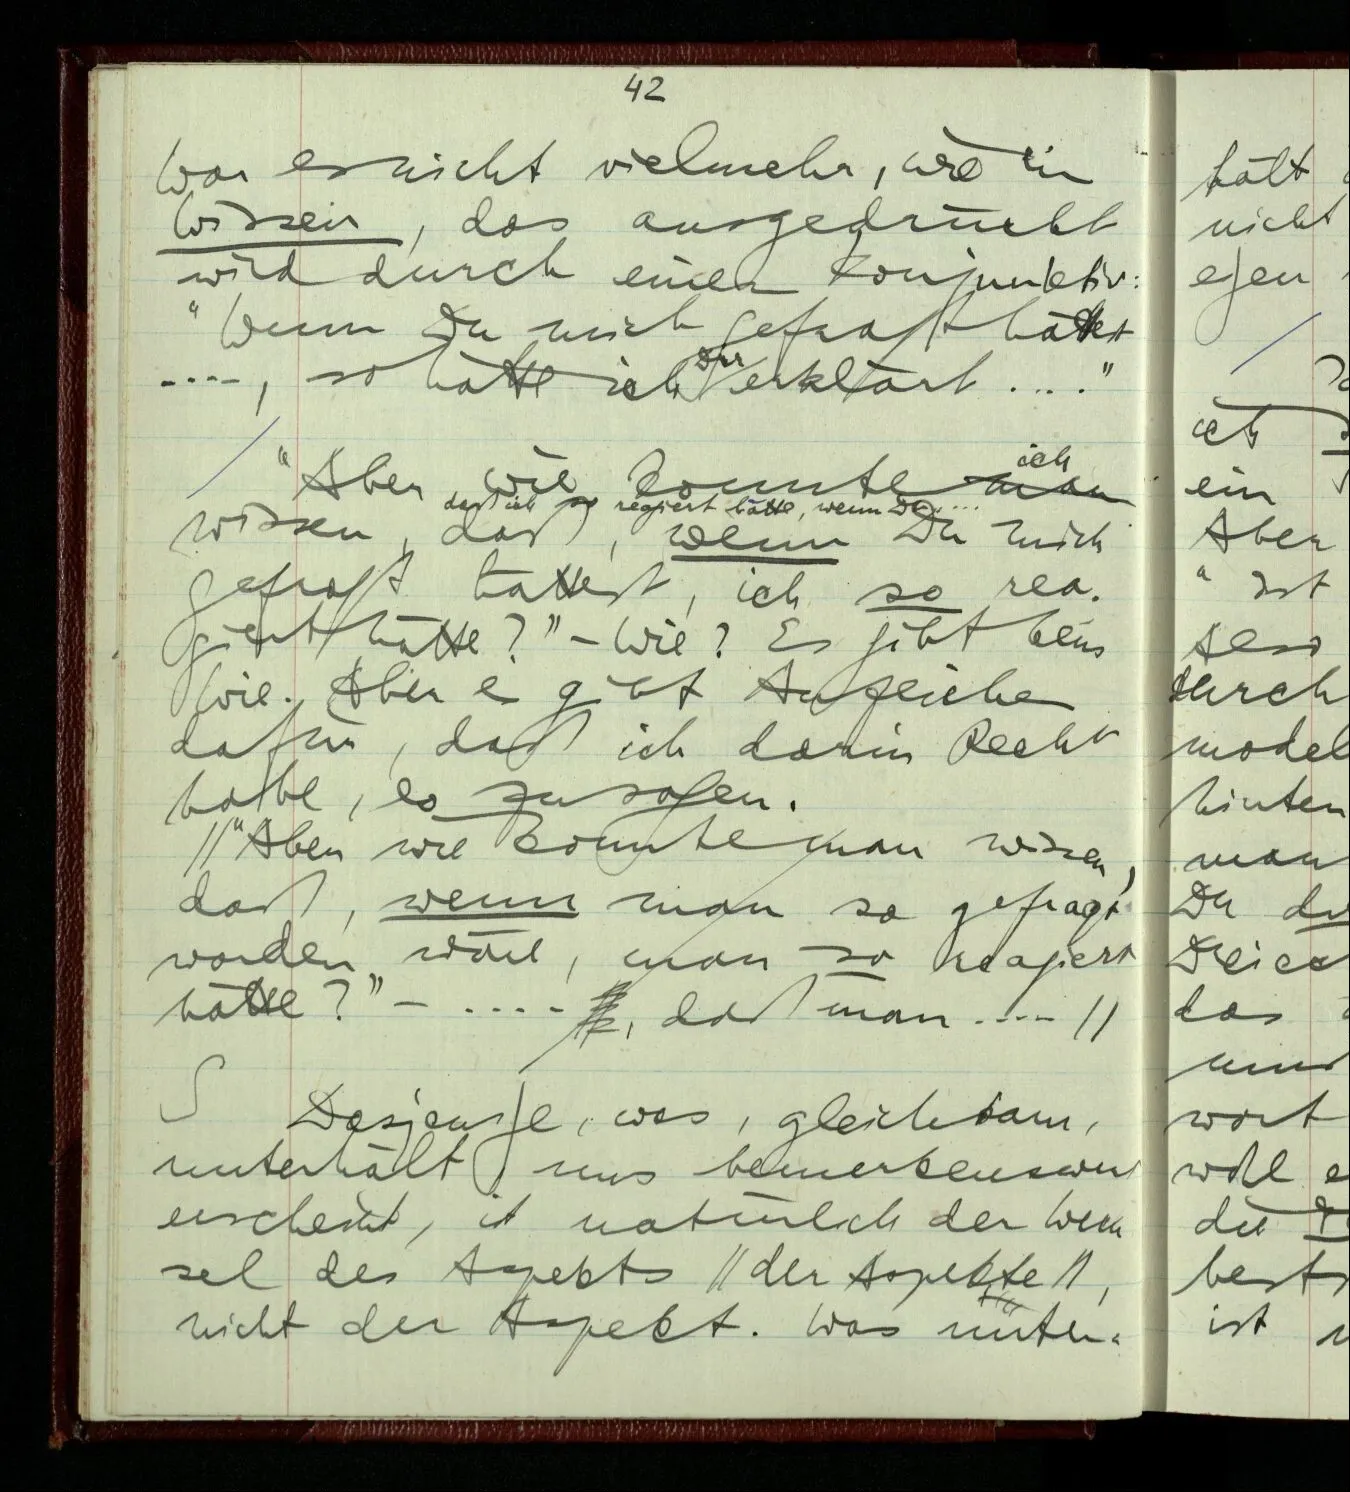 42
War es nicht vielmehr, wie ein
Wissen, das ausgedrückt
wird durch einen Konjunktiv:
"Wenn Du mich gefragt hättest
...., so hätte ich Dir erklärt ...."
"Aber wie konnte man ich
dass ich so reagiert hätte, wenn Du ....
wissen, daß, wenn Du mich
gefragt hättest, ich so rea-
giert hätte?" – Wie? Es gibt kein
Wie. Aber es gibt Anzeichen
dafür, daß ich darin Recht
habe, es zu sagen.
//"Aber wie konnte man wissen,
daß, wenn man so gefragt
worden wäre, man so reagiert
hätte?" – ...., daß man .... //
S Dasjenige, was, gleichsam,
unterhält, uns bemerkenswert
erscheint, ist natürlich der Wech
sel des Aspekts //der Aspekte//,
nicht der Aspekt. Was unter-
hält
nicht
ich
ein
Aber
"Ist
durch
model
hinten
man
Du
das
wort
die
ist